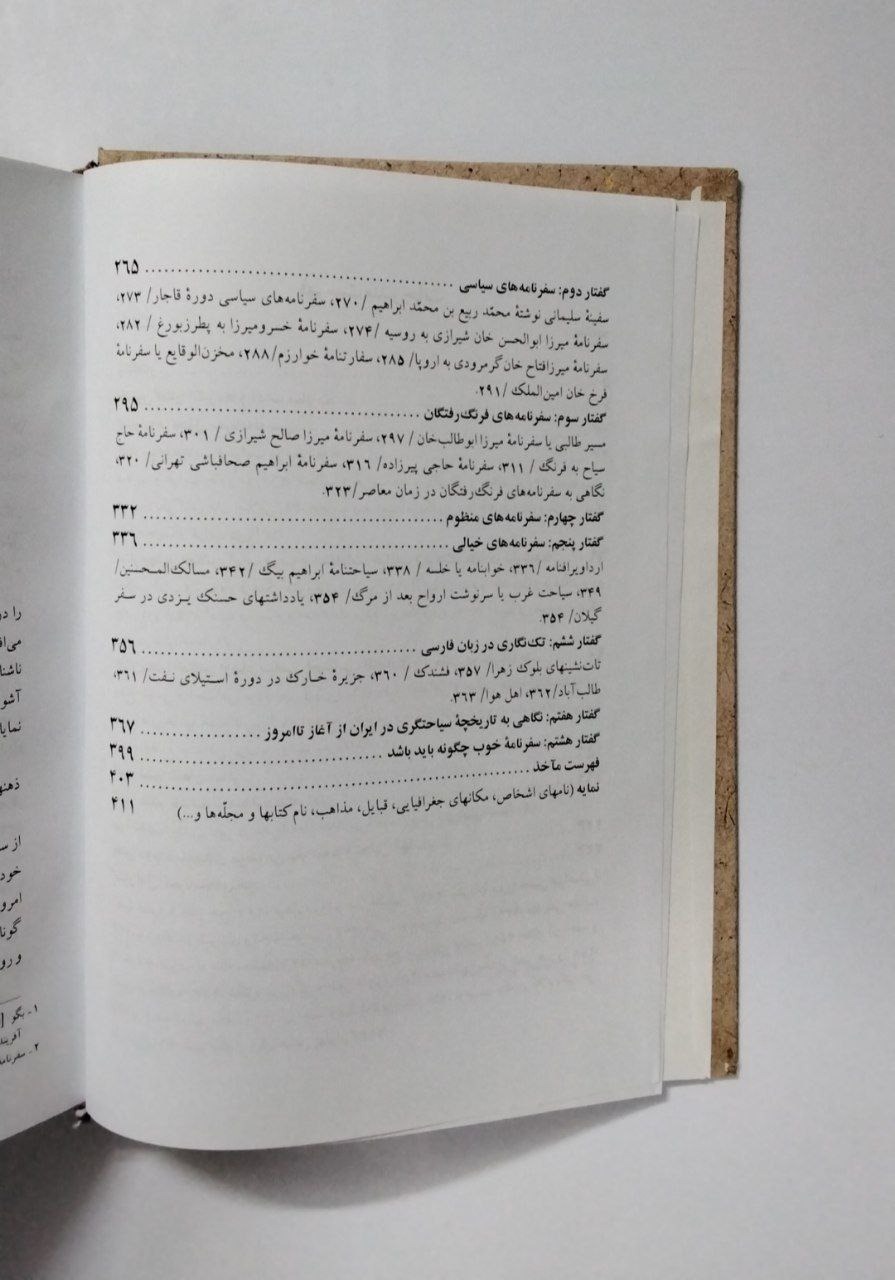 گفتار دوم: سفرنامه‌های سیاسی ........ ۲۶۵
سفینهٔ سلیمانی نوشتهٔ محمّد ربیع بن محمّد ابراهیم /۲۷۰، سفرنامه‌های سیاسی دورهٔ قاجار/ ۲۷۳،
سفرنامهٔ میرزا ابوالحسن خان شیرازی به روسیه /۲۷۴، سفرنامهٔ خسرومیرزا به پطرزبورغ / ۲۸۲،
سفرنامهٔ میرزافتاح خان گرمرودی به اروپا/ ۲۸۵، سفارتنامهٔ خوارزم/۲۸۸، مخزن‌الوقایع یا سفرنامهٔ
فرخ خان امین‌الملک /۲۹۱.
گفتار سوم: سفرنامه‌های فرنگ‌رفتگان ........ ۲۹۵
مسیر طالبی یا سفرنامهٔ میرزا ابوطالب‌خان / ۲۹۷، سفرنامهٔ میرزا صالح شیرازی / ۳۰۱، سفرنامهٔ حاج
سیاح به فرنگ / ۳۱۱، سفرنامهٔ حاجی پیرزاده/ ۳۱۶، سفرنامهٔ ابراهیم صحافباشی تهرانی/ ۳۲۰،
نگاهی به سفرنامه‌های فرنگ‌رفتگان در زمان معاصر/۳۲۳.
گفتار چهارم: سفرنامه‌های منظوم ........ ۳۳۲
گفتار پنجم: سفرنامه‌های خیالی ........ ۳۳۶
ارداویرافنامه /۳۳۶، خوابنامه یا خلسه / ۳۳۸، سیاحتنامهٔ ابراهیم بیگ /۳۴۲، مسالک‌المحسنین/
۳۴۹، سیاحت غرب یا سرنوشت ارواح بعد از مرگ/ ۳۵۴، یادداشتهای حسنک یزدی در سفر
گیلان/ ۳۵۴.
گفتار ششم: تک‌نگاری در زبان فارسی ........ ۳۵۶
تات‌نشینهای بلوک زهرا/ ۳۵۷، فشندک / ۳۶۰، جزیرهٔ خارک در دورهٔ استیلای نفت/ ۳۶۱،
طالب‌آباد/۳۶۲، اهل هوا/ ۳۶۳.
گفتار هفتم: نگاهی به تاریخچهٔ سیاحتگری در ایران از آغاز تاامروز ........ ۳۶۷
گفتار هشتم: سفرنامهٔ خوب چگونه باید باشد ........ ۳۹۹
فهرست مآخذ ........ ۴۰۳
نمایه (نامهای اشخاص، مکانهای جغرافیایی، قبایل، مذاهب، نام کتابها و مجلّه‌ها و...) ۴۱۱
را در
ناشنا
آشو
نمایا
ذهنه
از س
خود
امرو
گونا
و رو
۱ـ بگو [
آفریند
۲ـ سفرنامه